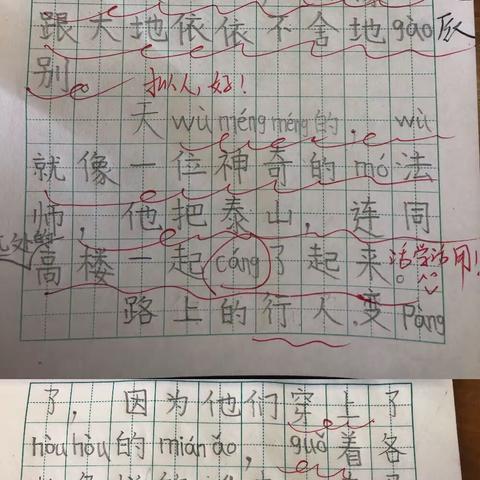 跟大地依依不舍地gào
别。拟人,好!
天wù méng méng的,wù
就像一位神奇的mó法
师,他把泰山,连同
高楼一起cáng了起来。活学活用!
路上的行人变pàng
了,因为他们穿上了
hòu hòu的mián ǎo,guǒ着各